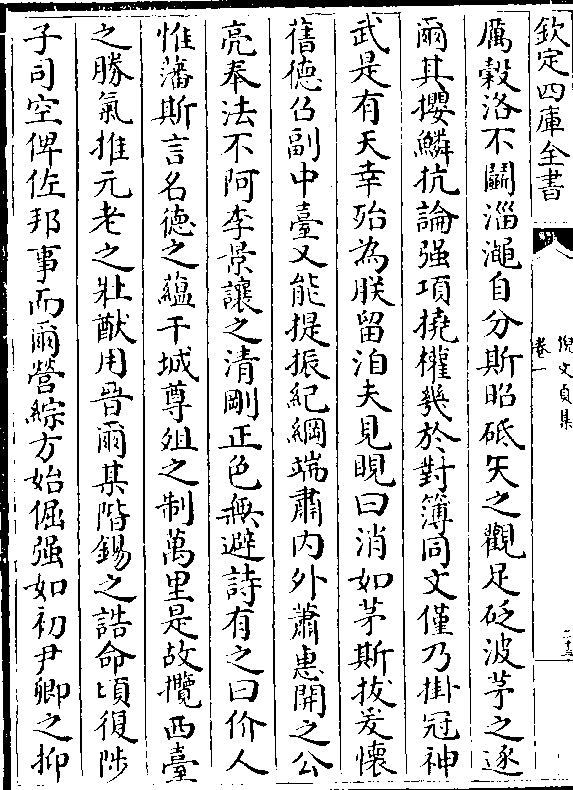 欽定四庫全書
倪文貞集
卷一
二十三
厲榖洛不鬭淄澠自分斯昭砥矢之觀足砭波茅之逐
爾其攖鱗抗論强項撓權幾於對簿同文僅乃掛冠神
武是有天幸殆為朕留洎夫見晛曰消如茅斯拔爰懷
舊德佔副中臺又能提振紀綱端肅内外蕭惠開之公
亮奉法不阿李景讓之清剛正色無避詩有之曰价人
惟藩斯言名德之蘊干城尊俎之制萬里是故攬西臺
之勝氣推元老之壯猷用晉爾某階錫之誥命頃復陟
子司空俾佐邦事而爾營綜方始倔强如初尹卿之抑